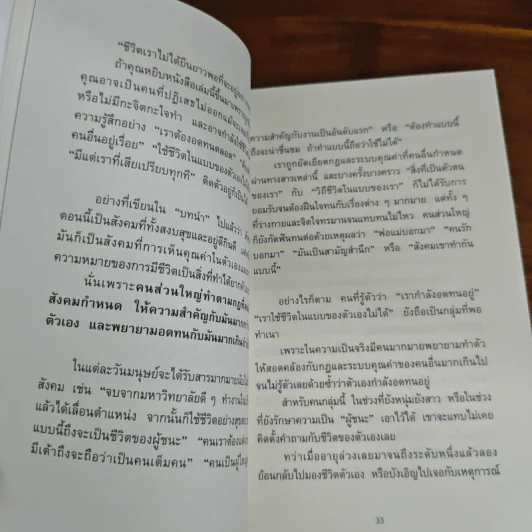 “ชีวิตเราไม่ได้ยืนยาวพอที่จะอยู่
ถ้าคุณหยิบหนังสือเล่มนี้ขึ้นมาเพราะ
คุณอาจเป็นคนที่ปฏิเสธไม่ออกแม้จะ
หรือไม่มีกะจิตกะใจทำ และอาจกำลังใช้ชีวิต
ความรู้สึกอย่าง “เราต้องอดทนตลอด”
คนอื่นอยู่เรื่อย” “ใช้ชีวิตในแบบของตัวเองไม่ได้
“มีแต่เราที่เสียเปรียบทุกที” ติดตัวอยู่ก็เป็นได้
อย่างที่เขียนใน “บทนำ” ไปแล้วว่า
ตอนนี้เป็นสังคมที่ทั้งสงบสุขและอยู่ดีกินดี
มันก็เป็นสังคมที่การเห็นคุณค่าในตัวเอง
ความหมายของการมีชีวิตเป็นสิ่งที่ทำได้ยาก
นั่นเพราะคนส่วนใหญ่ทำตามกฎที่
สังคมกำหนด ให้ความสำคัญกับมันมากกว่า
ตัวเอง และพยายามอดทนกับมันมากเกิน
ในแต่ละวันมนุษย์จะได้รับสารมากมาย
สังคม เช่น “จบจากมหาวิทยาลัยดี ๆ ทำงาน
แล้วได้เลื่อนตำแหน่ง จากนั้นก็ใช้ชีวิตอย่าง
แบบนี้ถึงจะเป็นชีวิตของผู้ชนะ” “คนเราต้อง
มีเต้าถึงจะถือว่าเป็นคนเต็มคน” “คนเป็นผู้ใหญ่
ความสำคัญกับงานเป็นอันดับแรก” หรือ “ต้องทำแบบนี้
ถึงจะน่าชื่นชม ถ้าทำแบบนี้ถือว่าใช้ไม่ได้”
เราถูกยัดเยียดกฎและระบบคุณค่าที่คนอื่นกำหนด
ผ่านทางสารเหล่านี้ และบางครั้งบางคราว “สิ่งที่เป็นตัวตน
ของเรา” กับ “วิถีชีวิตในแบบของเรา” ก็ไม่ได้รับการ
ยอมรับจนต้องฝืนใจทนกับเรื่องต่าง ๆ มากมาย แต่ทั้ง ๆ
ที่ร่างกายและจิตใจทรมานจนแทบทนไม่ไหว คนส่วนใหญ่
ก็ยังกัดฟันทนต่อด้วยเหตุผลว่า “พ่อแม่บอกมา” “คนรัก
บอกมา” “มันเป็นสามัญสำนึก” หรือ “สังคมเขาทำกัน
แบบนี้”
อย่างไรก็ตาม คนที่รู้ตัวว่า “เรากำลังอดทนอยู่”
“เราใช้ชีวิตในแบบของตัวเองไม่ได้” ยังถือเป็นกลุ่มที่พอ
ทำเนา
เพราะในความเป็นจริงมีคนมากมายพยายามทำตัว
ให้สอดคล้องกับกฎและระบบคุณค่าของคนอื่นมากเกินไป
จนไม่รู้ตัวเลยด้วยซ้ำว่าตัวเองกำลังอดทนอยู่
สำหรับคนกลุ่มนี้ ในช่วงที่ยังหนุ่มยังสาว หรือในช่วง
ที่ยังรักษาความเป็น “ผู้ชนะ” เอาไว้ได้ เขาจะแทบไม่เคย
คิดตั้งคำถามกับชีวิตของตัวเองเลย
ทว่าเมื่ออายุล่วงเลยมาจนถึงระดับหนึ่งแล้วลอง
ย้อนกลับไปมองชีวิตตัวเอง หรือบังเอิญไปเจอกับเหตุการณ์
33